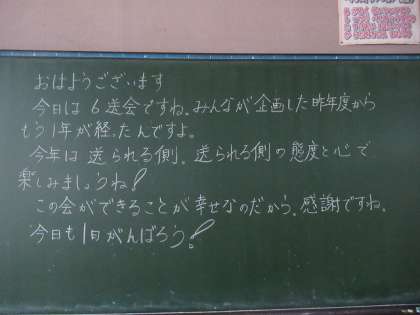 おはようございます
今日は6送会ですね。みんなが企画した昨年度から
もう1年が経ったんですよ。
今年は送られる側。送られる側の態度と心で
楽しみましょうね!
この会ができることが幸せなのだから、感謝ですね。
今日も1日がんばろう!